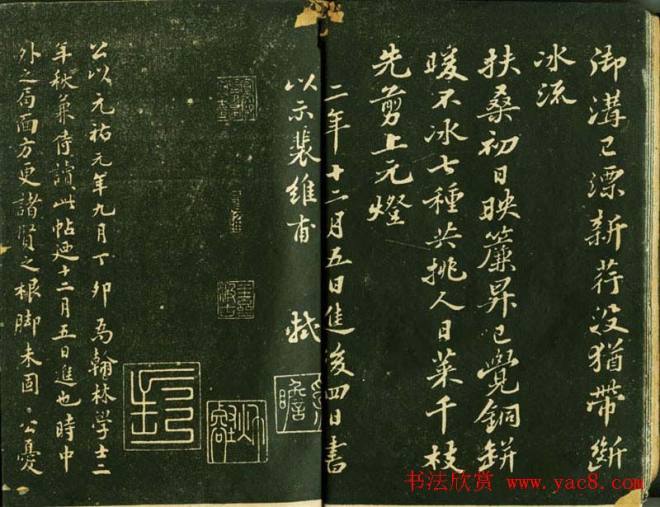 御溝已漂新荇没猶帶斷
冰流
扶桑初日映簾昇已覺銅缾
暖不冰七種共挑人日菜千枝
先剪上元燈
二年十二月五日進後四日書
以示裴維甫 軾
子瞻
公以元祐元年九月丁卯為翰林學士二
年秋兼侍讀此帖迺十二月五日進也時中
外之局面方更諸賢之根脚未固公憂
书法欣赏 www.yac8.com